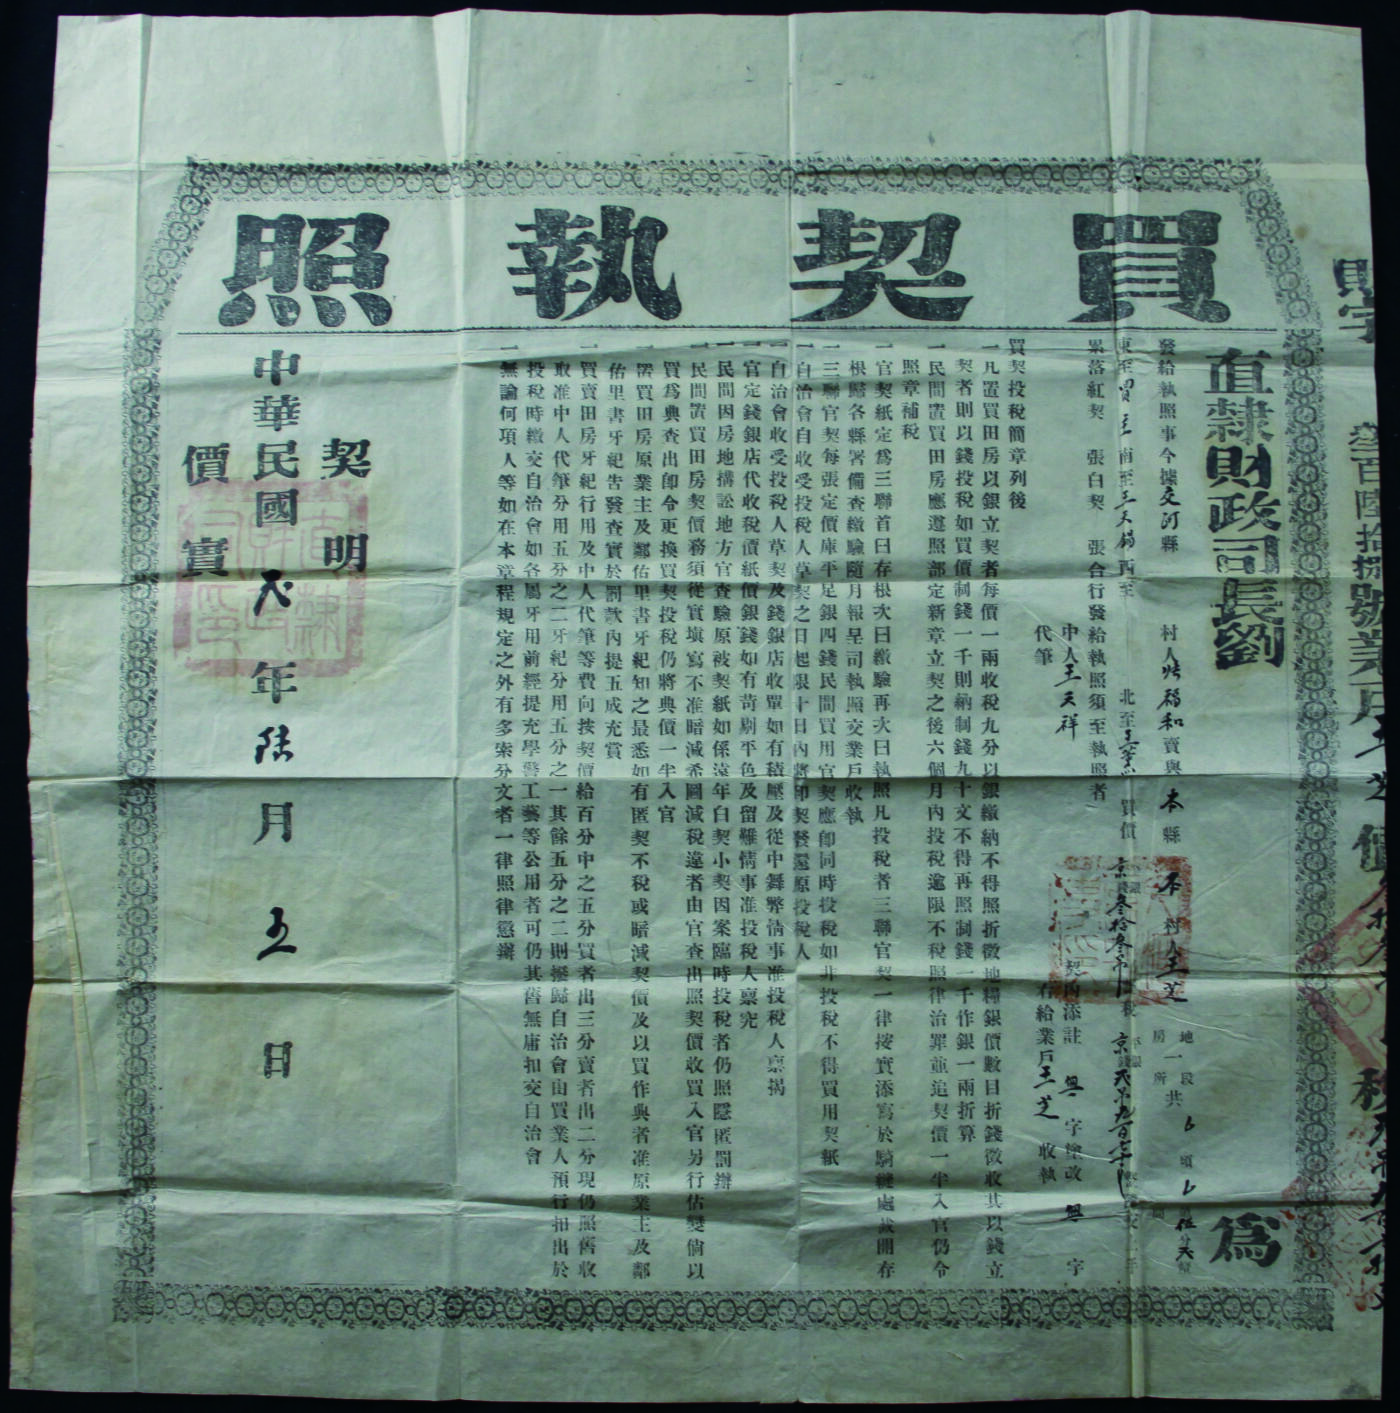 買契執照
直隸財政司長劉 為
發給執照事今據交河縣 村人 福和賣與本縣本村人王芝 地一段共 頃 伍分
房 所
東至 南至王天錫西至 北至 買價京錢叁拾叁吊 稅京錢弍吊九百七十
累落紅契 張白契 張合行發給執照須至執照者
中人王天祥 契內添註 無 字塗改 無 字
代筆 右給業戶王芝 收執
買契投稅簡章列後
一凡置買田房以銀立契者每價一兩收稅九分以銀繳納不得照折徵地糧銀價數目折錢徵收其以錢立
契者則以錢投稅如買價制錢一千則納制錢九十文不得再照制錢一千作銀一兩折算
一民間置買田房應遵照部定新章立契之後六個月內投稅逾限不稅照律治罪並追契價一半入官仍令
照章補稅
一官契紙定為三聯首曰存根次曰繳驗再次曰執照凡投稅者三聯官契一律按實添寫於騎縫處裁開存
根歸各縣署備查繳驗隨月報呈司執照交業戶收執
一三聯官契每張定價庫平足銀四錢民間買用官契應即同時投稅如非投稅不得買用契紙
一自治會自收受投稅人草契之日起限十日內將印契發還原投稅人
一自治會收受投稅人草契及錢銀店收單如有積壓及從中舞弊情事准投稅人稟揭
一官定錢銀店代收稅價紙價銀錢如有苛剔平色及留難情事准投稅人稟究
一民間因房地搆訟地方官查驗原被契紙如係遠年白契小契因案臨時投稅者仍照隱匿罰辦
一民間置買田房契價務須從實塡寫不准暗減希圖減稅違者由官查出照契價收買入官另行估變倘以
買為典查出即令更換買契投稅仍將典價一半入官
一置買田房原業主及鄰佑里書牙紀知之最悉如有匿契不稅或暗減契價及以買作典者准原業主及鄰
佑里書牙紀告發查實於罰款內提五成充賞
一買賣田房牙紀行用及中人代筆等費向按契價給百分中之五分買者出三分賣者出二分現仍照舊收
取准中人代筆分用五分之二牙紀分用五分之一其餘五分之二則撥歸自治會由買業人預行扣出於
投稅時繳交自治會如各屬牙用前經提充學警工藝等公用者可仍其舊無庸扣交自治會
一無論何項人等如在本章程規定之外有多索分文者一律照律懲辦
契明
中華民國弍年陸月五日
價實